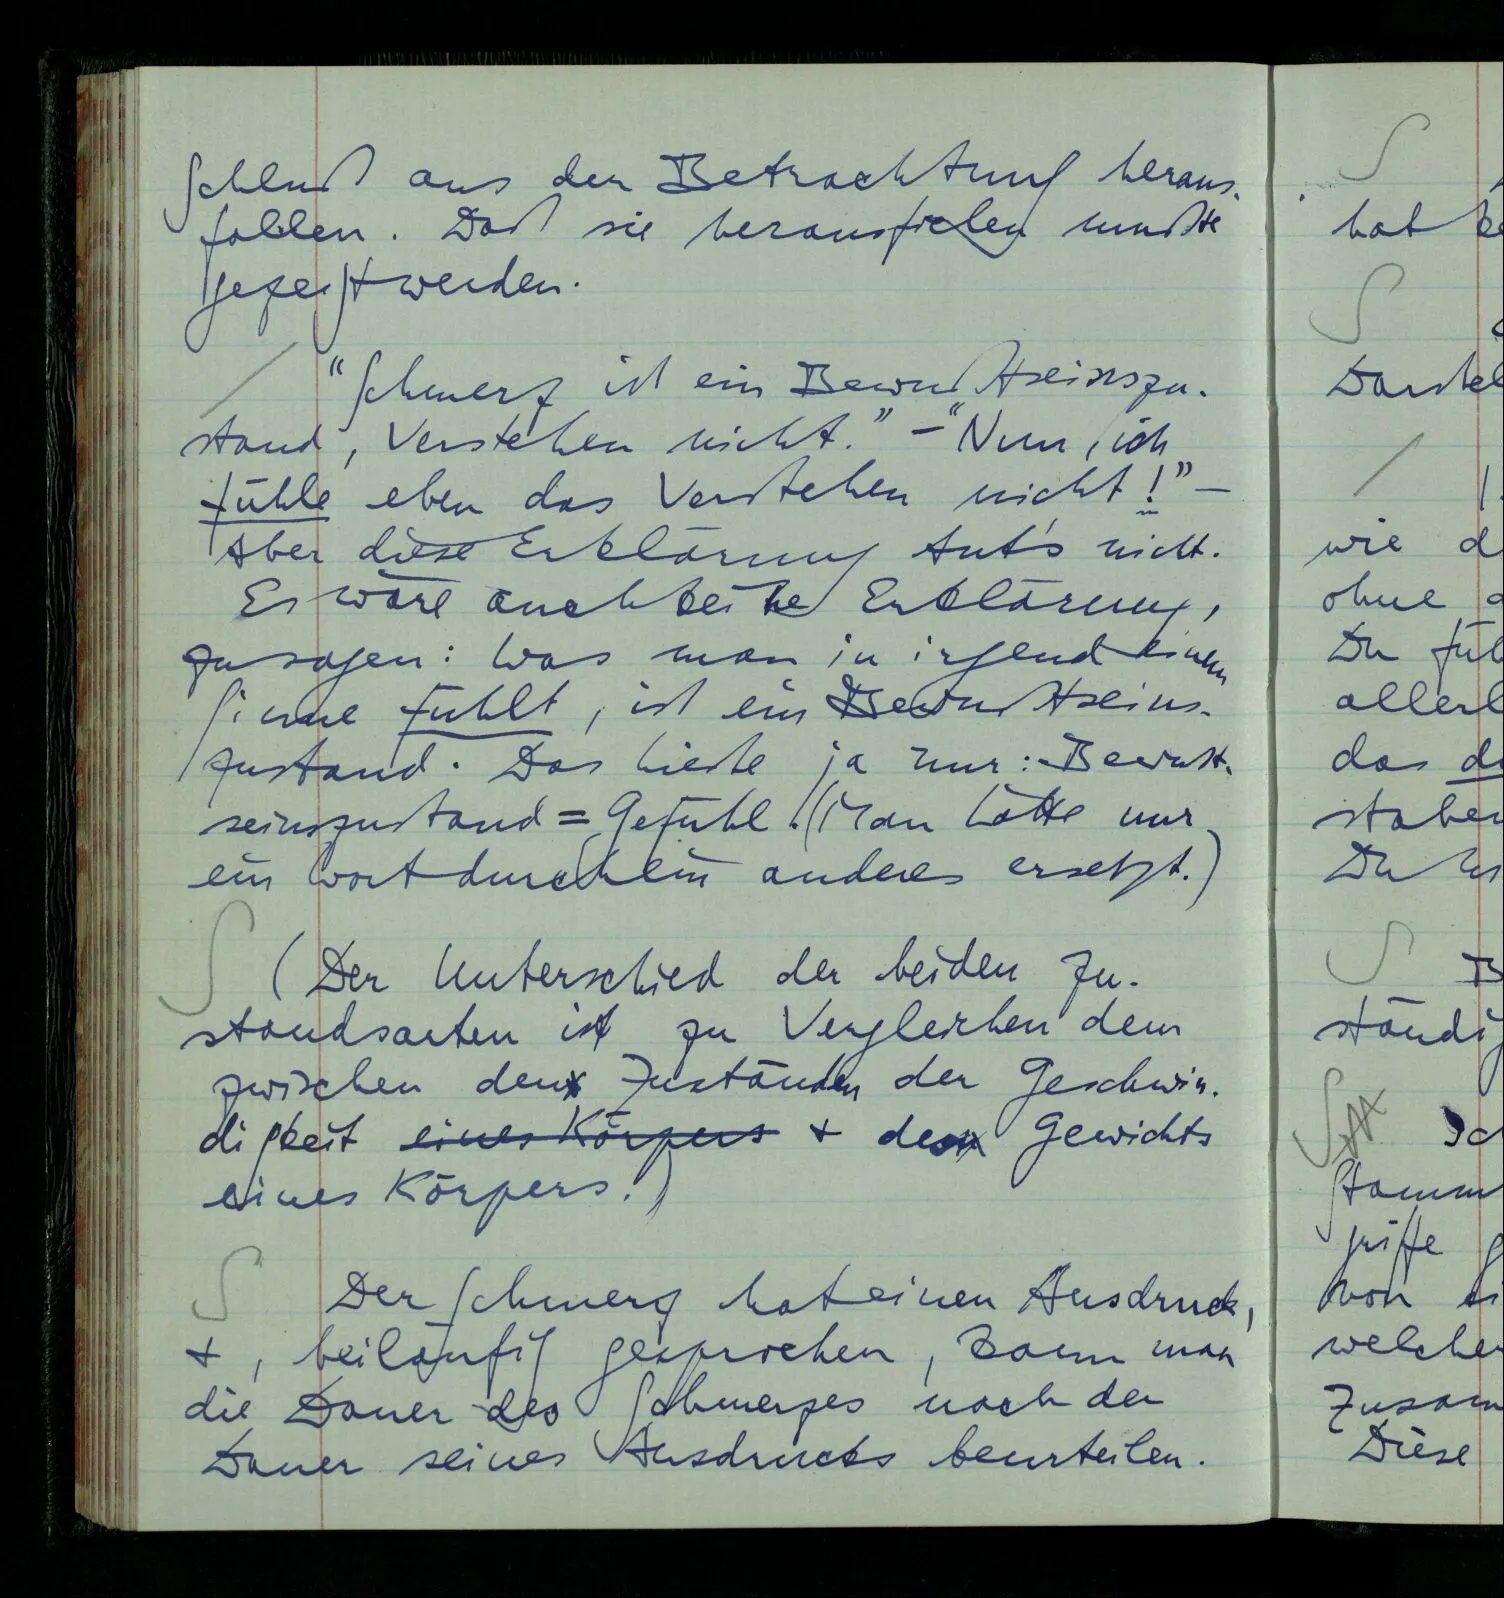 Schluß aus der Betrachtung heraus-
fallen. Daß sie herausfielen mußte
gezeigt werden.
/ "Schmerz ist ein Bewußtseinszu-
stand, Verstehen nicht." – "Nun, ich
fühle eben das Verstehen nicht!" –
Aber diese Erklärung tut's nicht.
Es wäre auch keine Erklärung,
zu sagen: Was man in irgend einem
Sinne fühlt, ist ein Bewußtseins-
zustand. Das hieße ja nur: Bewußt-
seinszustand = Gefühl. (Man hätte nur
ein Wort durch ein anderes ersetzt.)
S (Der Unterschied der beiden Zu-
standsarten ist zu vergleichen dem
zwischen den Zuständen der Geschwin-
digkeit eines Körpers + des Gewichts
eines Körpers.)
S Der Schmerz hat einen Ausdruck,
+, beiläufig gesprochen, kann man
die Dauer des Schmerzes nach der
Dauer seines Ausdrucks beurteilen.
S
hat
S
/
wie
ohne
Du
das
Du
S
S
von
Diese